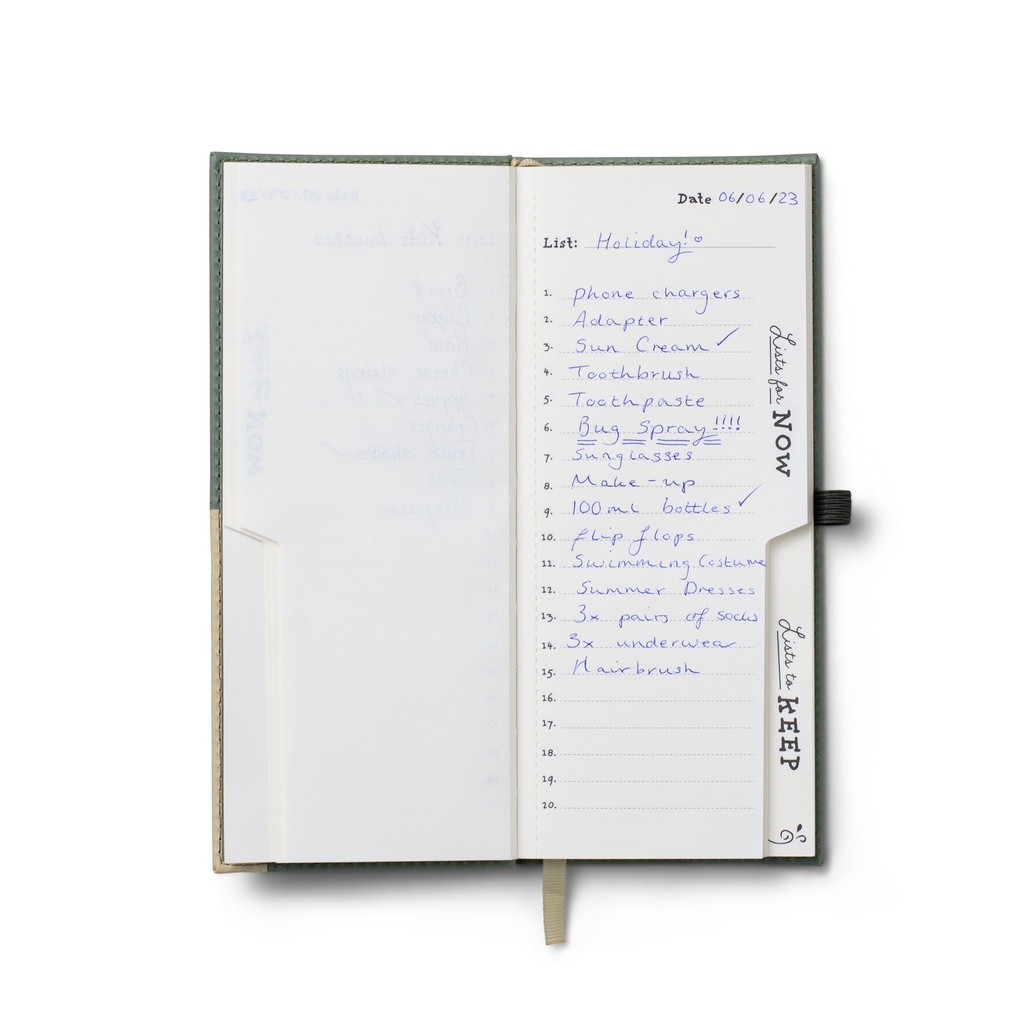 Date 06/06/23
List: Holiday!
1. phone chargers
2. Adapter
3. Sun Cream ✓
4. Toothbrush
5. Toothpaste
6. Bug Spray!!!!
7. Sunglasses
8. Make-up
9. 100ml bottles ✓
10. flip flops
11. Swimming Costume
12. Summer Dresses
13. 3x pairs of socks
14. 3x underwear
15. Hairbrush
16.
17.
18.
19.
20.
Lists for NOW
Lists to KEEP